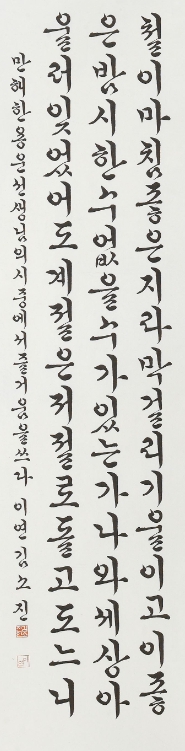 철이마침좋은지라막걸리기울이고이좋
은밤시한수없을수가있는가나와세상아
울러잊었어도계절은저절로돌고도느니
만해한용운선생님의시중에서즐거움을쓰다 이연김노진